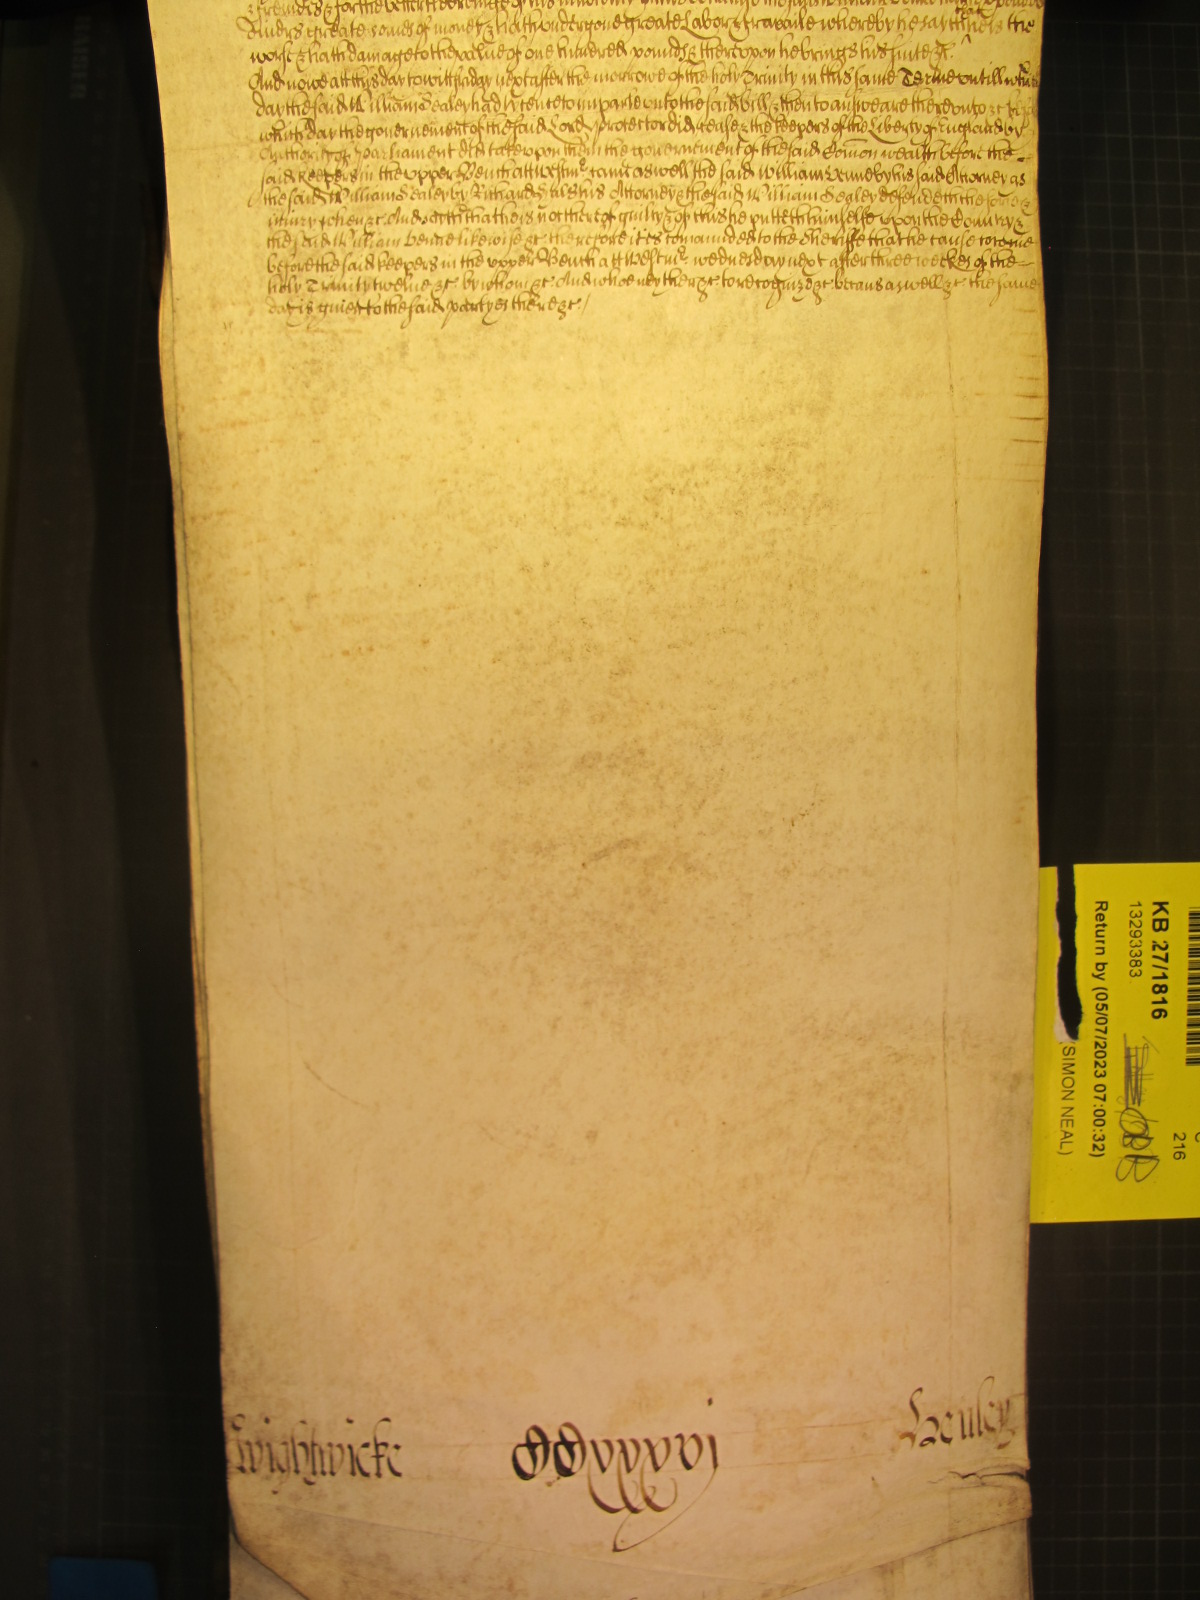 & freindes & for the better
divers greate somes of money & hath undergone greate Labor & travaile whereby he saith he is the
worse & hath damage to the value of one hundred pounds & thereupon he brings his suite &c
And nowe att this day to witt fryday next after the morrowe of the holy Trinity in this same Terme untill which
day the said William Sealey had Lycence to imparle unto the said bill & then to answeare thereunto &c before
which day the governement of the said Lord Protector did cease & the keepers of the Liberty of England by
Authority of Parliament did take upon them the governement of the said Com̄on wealth before the
said keepers in the upper Bench att Westm̄ came aswell the said William Venne by his said Attorney as
the said William Sealey by Richard his Attorney & the said William Sealey defendeth the force &
iniury when &c And saith that he is not thereof guilty & of this he putteth himselfe upon the Countrey &
the said William Venne likewise &c therefore it is com̄anded to the Sheriffe that he cause to come
before the said keepers in the upper Bench att Westm̄ wednesday next after three weekes of the
holy Trinity twelve &c by whom &c And who neyther &c to recognize &c because aswell &c the same
day is given to the said partyes there &c /
Wightwicke CCxxxxvj Henley
KB 27/1816
13293383
Return by (05/07/2023 07:00:32)
SIMON NEAL)
216